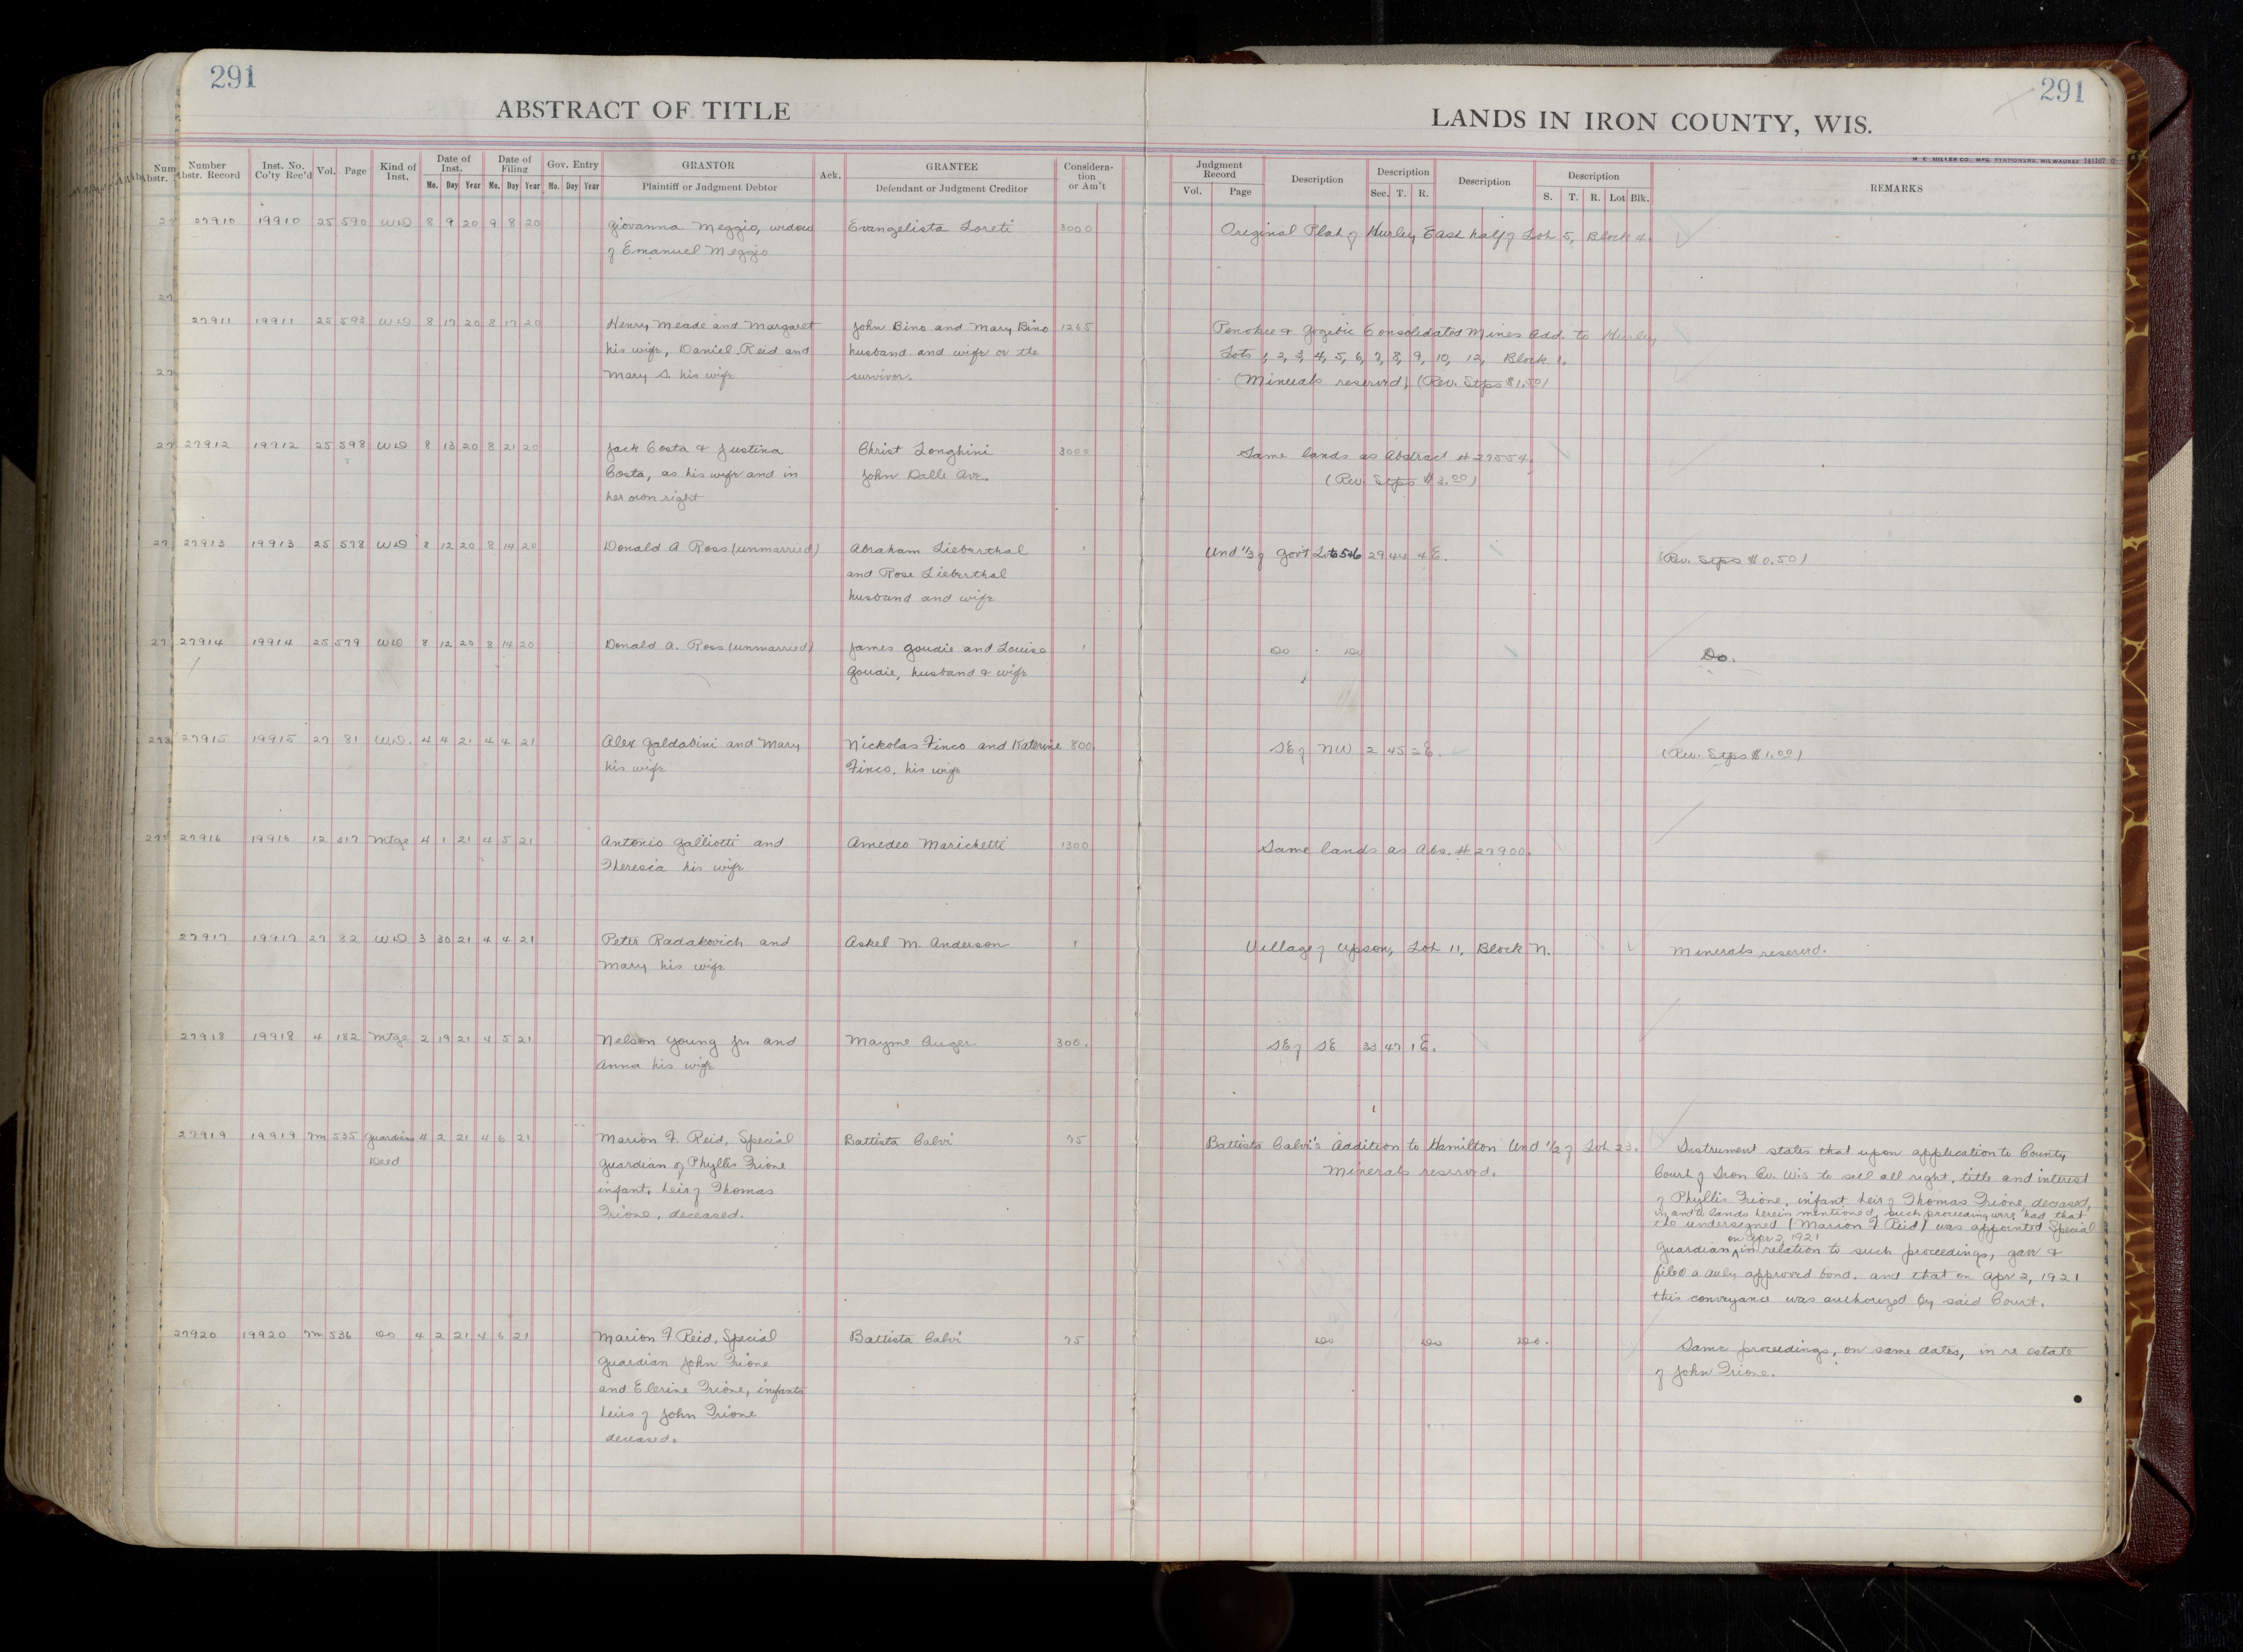 291
291
ABSTRACT OF TITLE
LANDS IN IRON COUNTY, WIS.
M. C. MILLER CO., MFG. STATIONERS, MILWAUKEE 141107
Number Abstr. Record | Inst. No. Co'ty Rec'd | Vol. | Page | Kind of Inst. | Date of Inst. Mo. Day Year | Date of Filing Mo. Day Year | Gov. Entry Mo. Day Year | GRANTOR Plaintiff or Judgment Debtor | Ack. | GRANTEE Defendant or Judgment Creditor | Considera-tion or Am't | Judgment Record Vol. Page | Description | Description Sec. T. R. | Description | Description S. T. R. Lot Blk. | REMARKS
27910 19910 25 590 WD 8 9 20 9 8 20 Giovanna Meggio, widow Evangelista Loreti 3000 Original Plat of Hurley East half of Lot 5, Block 4.
of Emanuel Meggio
27911 19911 25 593 WD 8 17 20 8 17 20 Henry Meade and Margaret John Bino and Mary Bino 1265 Penokee & Gogebic Consolidated Mines Add. to Hurley
his wife, Daniel Reid and husband and wife or the Lots 1, 2, 3, 4, 5, 6, 7, 8, 9, 10, 12, Block 1.
Mary S. his wife survivor. (Minerals reserved) (Rev. Stps $1.50)
27912 19912 25 598 WD 8 13 20 8 21 20 Jack Costa & Justina Christ Longhini 3000 Same lands as Abstract #27554.
Costa, as his wife and in John Dalle Ave. (Rev. Stps $3.00)
her own right
27913 19913 25 578 WD 8 12 20 8 14 20 Donald A Ross (unmarried) Abraham Lieberthal 1 Und 1/3 of Gov't Lots 5&6 29 44 4E. (Rev. Stps $0.50)
and Rose Lieberthal
husband and wife
27914 19914 25 579 WD 8 12 20 8 14 20 Donald A. Ross (unmarried) James Goudie and Louise 1 Do Do Do.
Goudie, husband & wife
27915 19915 27 81 W.D. 4 4 21 4 4 21 Alex Galdabini and Mary Nickolas Finco and Katerine 800 SE of NW 2 45 2E. (Rev. Stps $1.00)
his wife Finco, his wife
27916 19916 12 317 Mtge 4 1 21 4 5 21 Antonio Galliotti and Amedeo Marichetti 1300 Same lands as Abs. #27900.
Theresia his wife
27917 19917 27 82 WD 3 30 21 4 4 21 Peter Radakovich and Askel M. Anderson 1 Village of Upson, Lot 11, Block N. Minerals reserved.
Mary his wife
27918 19918 4 182 Mtge 2 19 21 4 5 21 Nelson Young Jr. and Mayme Auger 300. SE of SE 33 47 1E.
Anna his wife
27919 19919 7m 535 Guardians 4 2 21 4 6 21 Marion F. Reid, Special Battista Calvi 75 Battista Calvi's Addition to Hamilton Und 1/2 of Lot 23. Instrument states that upon application to County
Deed Guardian of Phyllis Trione Minerals reserved. Court of Iron Co. Wis to sell all right, title and interest
infant, heir of Thomas of Phyllis Trione, infant heir of Thomas Trione, deceased,
Trione, deceased. in and to lands herein mentioned, such proceeding were had that
the undersigned (Marion F Reid) was appointed Special
on Apr 2, 1921
Guardian, in relation to such proceedings, gave &
filed a duly approved bond. and that on Apr 2, 1921
this conveyance was authorized by said Court.
27920 19920 7m 536 Do 4 2 21 4 6 21 Marion F Reid, Special Battista Calvi 75 Do Do Do. Same proceedings, on same dates, in re estate
Guardian John Trione of John Trione.
and Elerine Trione, infants
heirs of John Trione
deceased.